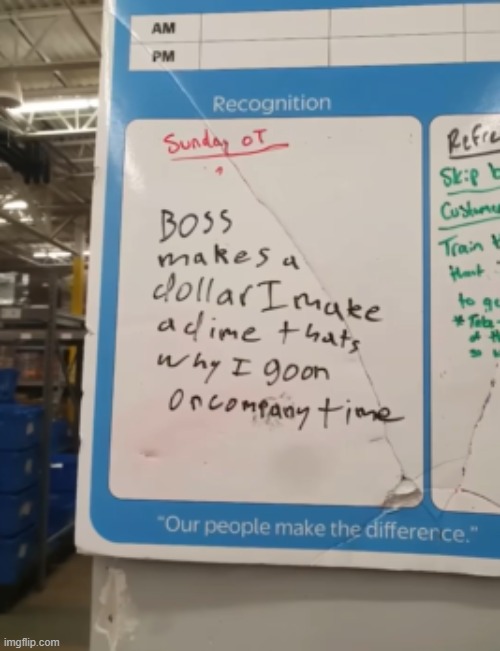 AM
PM
Recognition
Sunday OT
BOSS
makes a
dollar I make
a dime thats
why I goon
on company time
Skip
Train
to
"Our people make the difference."
imgflip.com